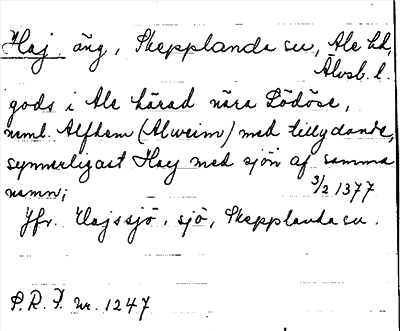 Haj äng, Skepplanda sn, Ale hd,
Älvsb. l.
gods i Ale härad nära Lödöse,
näml. Alfhem (Alweim) med tillydande,
synnerligast Hay med sjön af samma
namn; 3/2 1377
Jfr. Hajssjö, sjö, Skepplanda sn.
P.R.F. nr. 1247